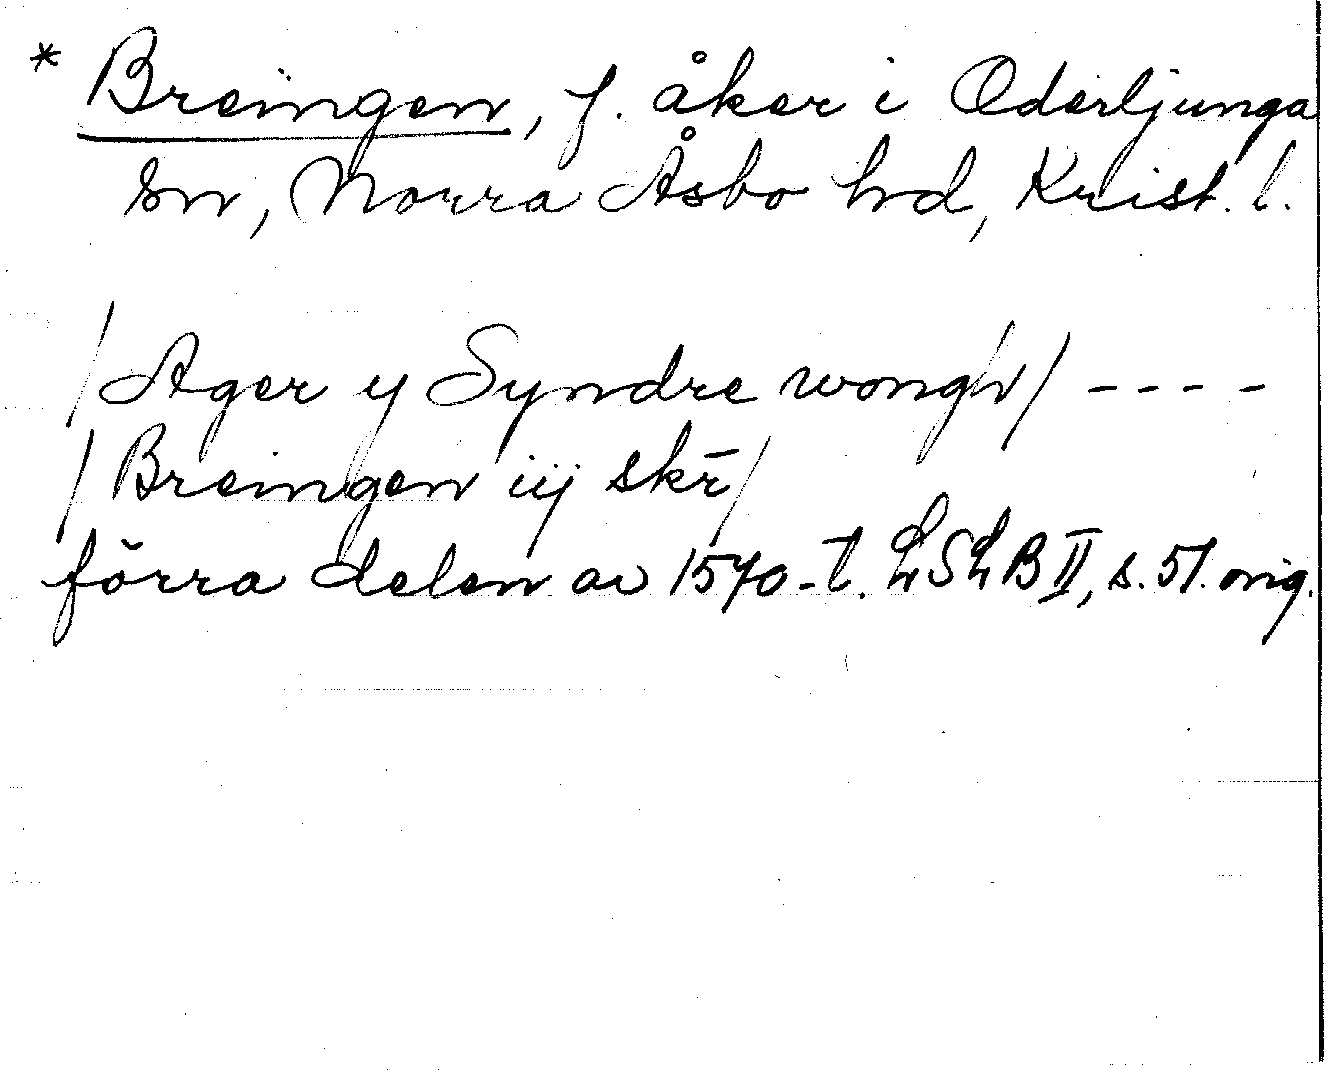 * Breingen, f. åker i Oderljunga
sn, Norra Åsbo hd, Krist. l.
/Ager y Syndre wong'n/ - - - -
/Breingen iij skr̄/
förra delen av 1570-t. LSLB II, s. 51. orig.